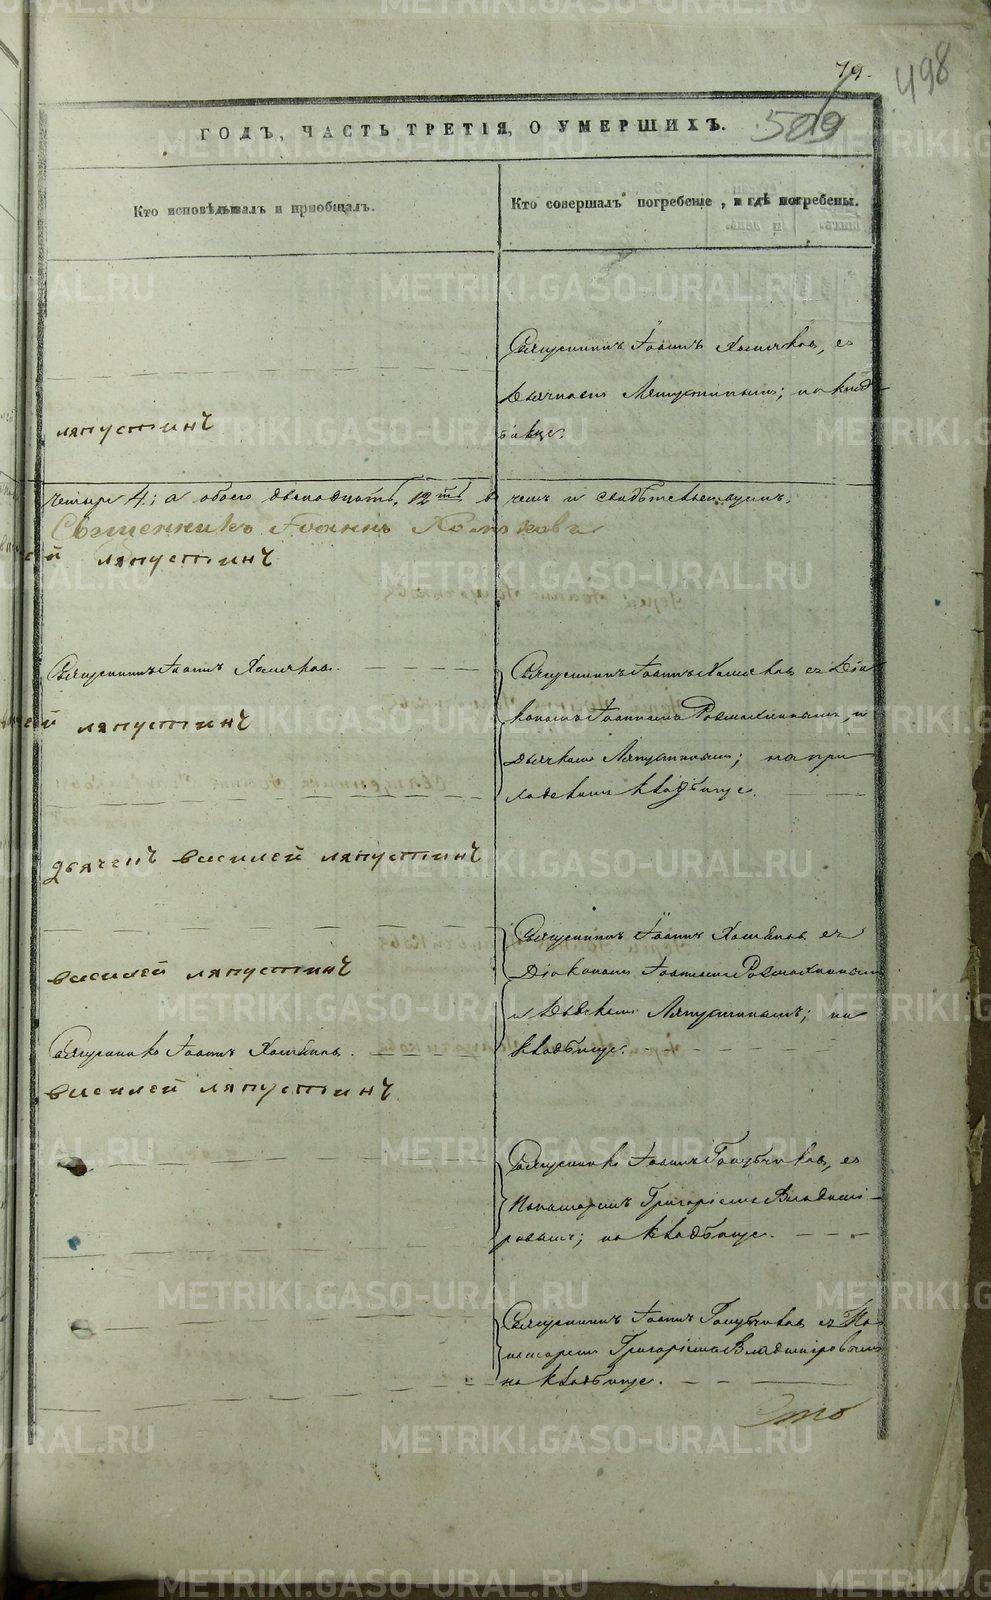 79.
498
509
ГОДЪ, ЧАСТЬ ТРЕТІЯ, О УМЕРШИХЪ.
Кто исповѣдывалъ и пріобщалъ.
Кто совершалъ погребеніе, и гдѣ погребены.
Священникъ Іоаннъ Хомяковъ, съ
Дьячкомъ Ляпустинымъ; на клад-
бищѣ.
ляпустинъ
четыре 4; а обоего двенадцать, 12ть въ чемъ и свидѣтельствуемъ.
Священникъ Іоаннъ Хомяковъ
ей ляпустинъ
Священникъ Іоаннъ Хомяковъ.
Священникъ Іоаннъ Хомяковъ съ Діа
кономъ Іоанномъ и
Дьячкомъ Ляпустинымъ; на при
ходскомъ кладбищѣ.
ей ляпустинъ
дьячекъ василей ляпустинъ
Священникъ Іоаннъ Хомяковъ съ
Діакономъ Іоанномъ
и Дьячкомъ Ляпустинымъ; на
кладбищѣ.
василей ляпустинъ
Священникъ Іоаннъ Хомяковъ.
василей ляпустинъ
Священникъ Іоаннъ Голубчиковъ, съ
Пономаремъ Григоріемъ Владимі-
ровымъ; на кладбищѣ.
Священникъ Іоаннъ Голубчиковъ съ По
номаремъ Григоріемъ Владиміровымъ
на кладбищѣ.
METRIKI.GASO-URAL.RU